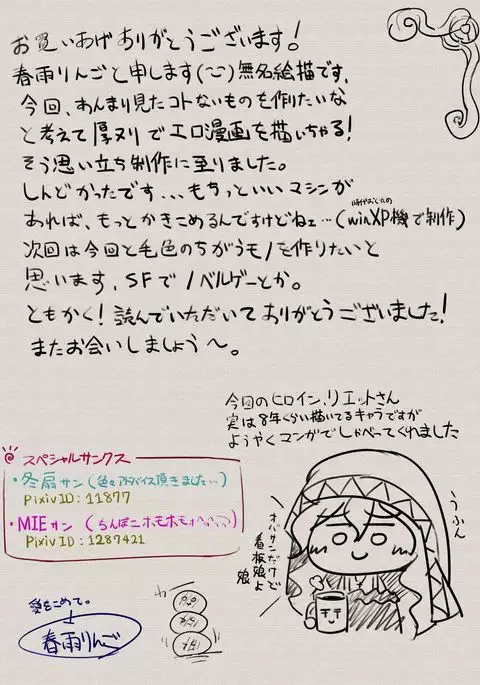 お買いあげありがとうございます!
春雨りんごと申します(~~)無名絵描です。
今回、あんまり見たコトないものを作りたいな
と考えて厚ヌリでエロ漫画を描いちゃる!
そう思い立ち制作に至りました。
しんどかったです...もちっといいマシンが
あれば、もっとかきこめるんですけどねェ…(winXP機で制作)
時代おくれの
次回は今回と毛色のちがうモノを作りたいと
思います、SFでノベルゲーとか。
ともかく!読んでいただいてありがとうございました!
またお会いしましょう〜。
今回のヒロイン、リエットさん
実は8年くらい描いてるキャラですが
ようやくマンガでしゃべってくれました
スペシャルサンクス
・冬扇サン(色々アドバイス頂きました…)
PixivID:11877
・MIEサン(ちんぽこホモホモ
PixivID:1287421
うふん
オバサンだけど
看板娘よ
娘
愛をこめて。
春雨りんご